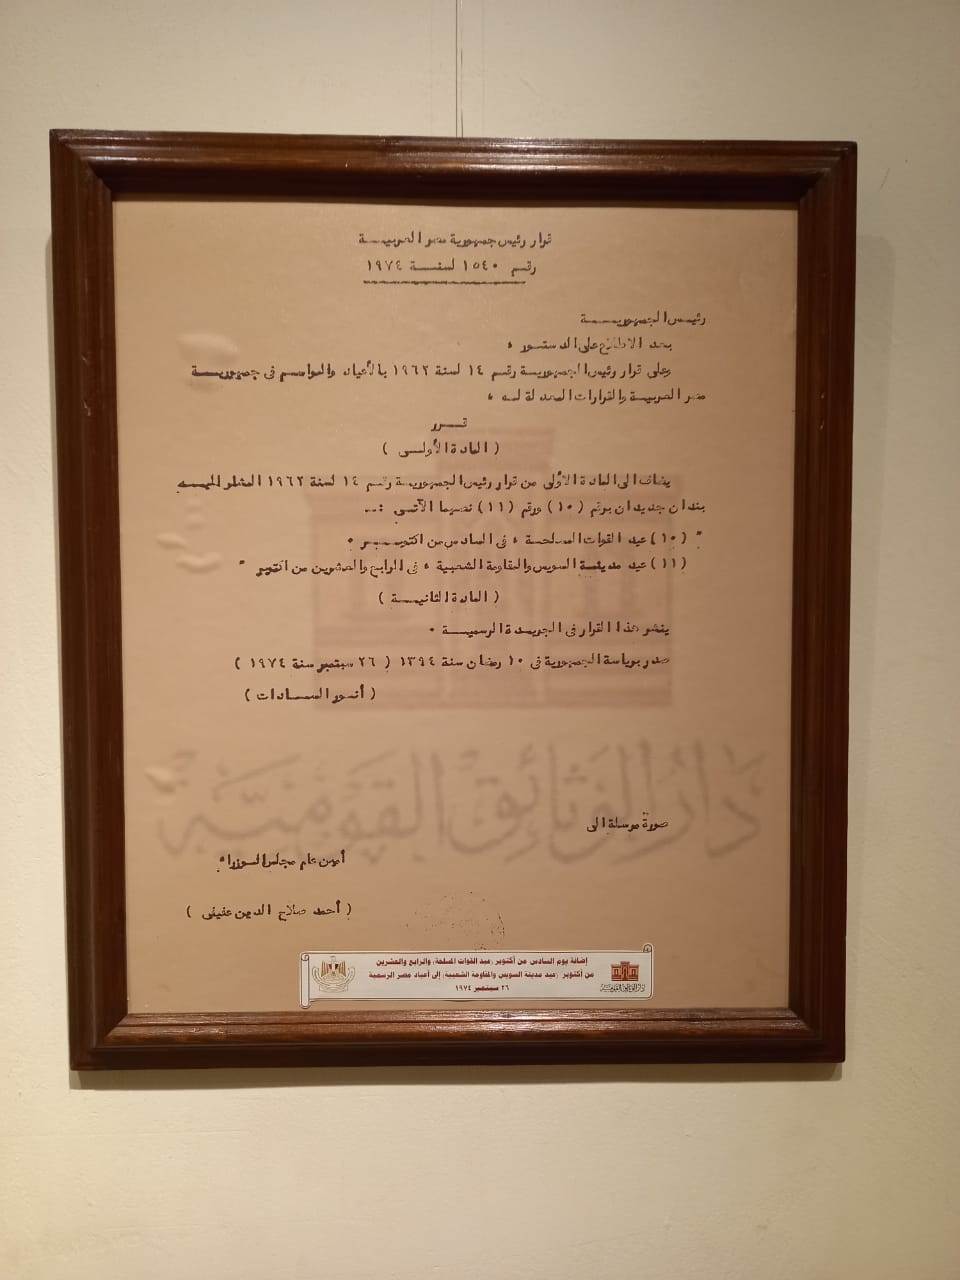 قرار رئيس جمهورية مصر العربية
رقم ١٥٤٠ لسنة ١٩٧٤
رئيس الجمهورية
بعد الاطلاع على الدستور ،
وعلى قرار رئيس الجمهورية رقم ١٤ لسنة ١٩٦٢ بالأعياد والمواسم فى جمهورية
مصر العربية والقرارات المعدلة له ،
قرر
( المادة الأولى )
يضاف الى المادة الأولى من قرار رئيس الجمهورية رقم ١٤ لسنة ١٩٦٢ المشار اليه
بندان جديدان برقم (١٠) ورقم (١١) نصهما الآتى :ـ
" (١٠) عيد القوات المسلحة ، فى السادس من اكتوبر .
(١١) عيد مدينة السويس والمقاومة الشعبية ، فى الرابع والعشرين من اكتوبر "
( المادة الثانية )
ينشر هذا القرار فى الجريدة الرسمية .
صدر برياسة الجمهورية فى ١٠ رمضان سنة ١٣٩٤ ( ٢٦ سبتمبر سنة ١٩٧٤ )
( أنور السادات )
دار الوثائق القومية
صورة مرسلة الى
أمين عام مجلس الوزراء
( أحمد صلاح الدين عفيفى )
إضافة يوم السادس من أكتوبر (عيد القوات المسلحة) والرابع والعشرين
من أكتوبر (عيد مدينة السويس والمقاومة الشعبية) إلى أعياد مصر الرسمية
٢٦ سبتمبر ١٩٧٤
دار الوثائق القومية